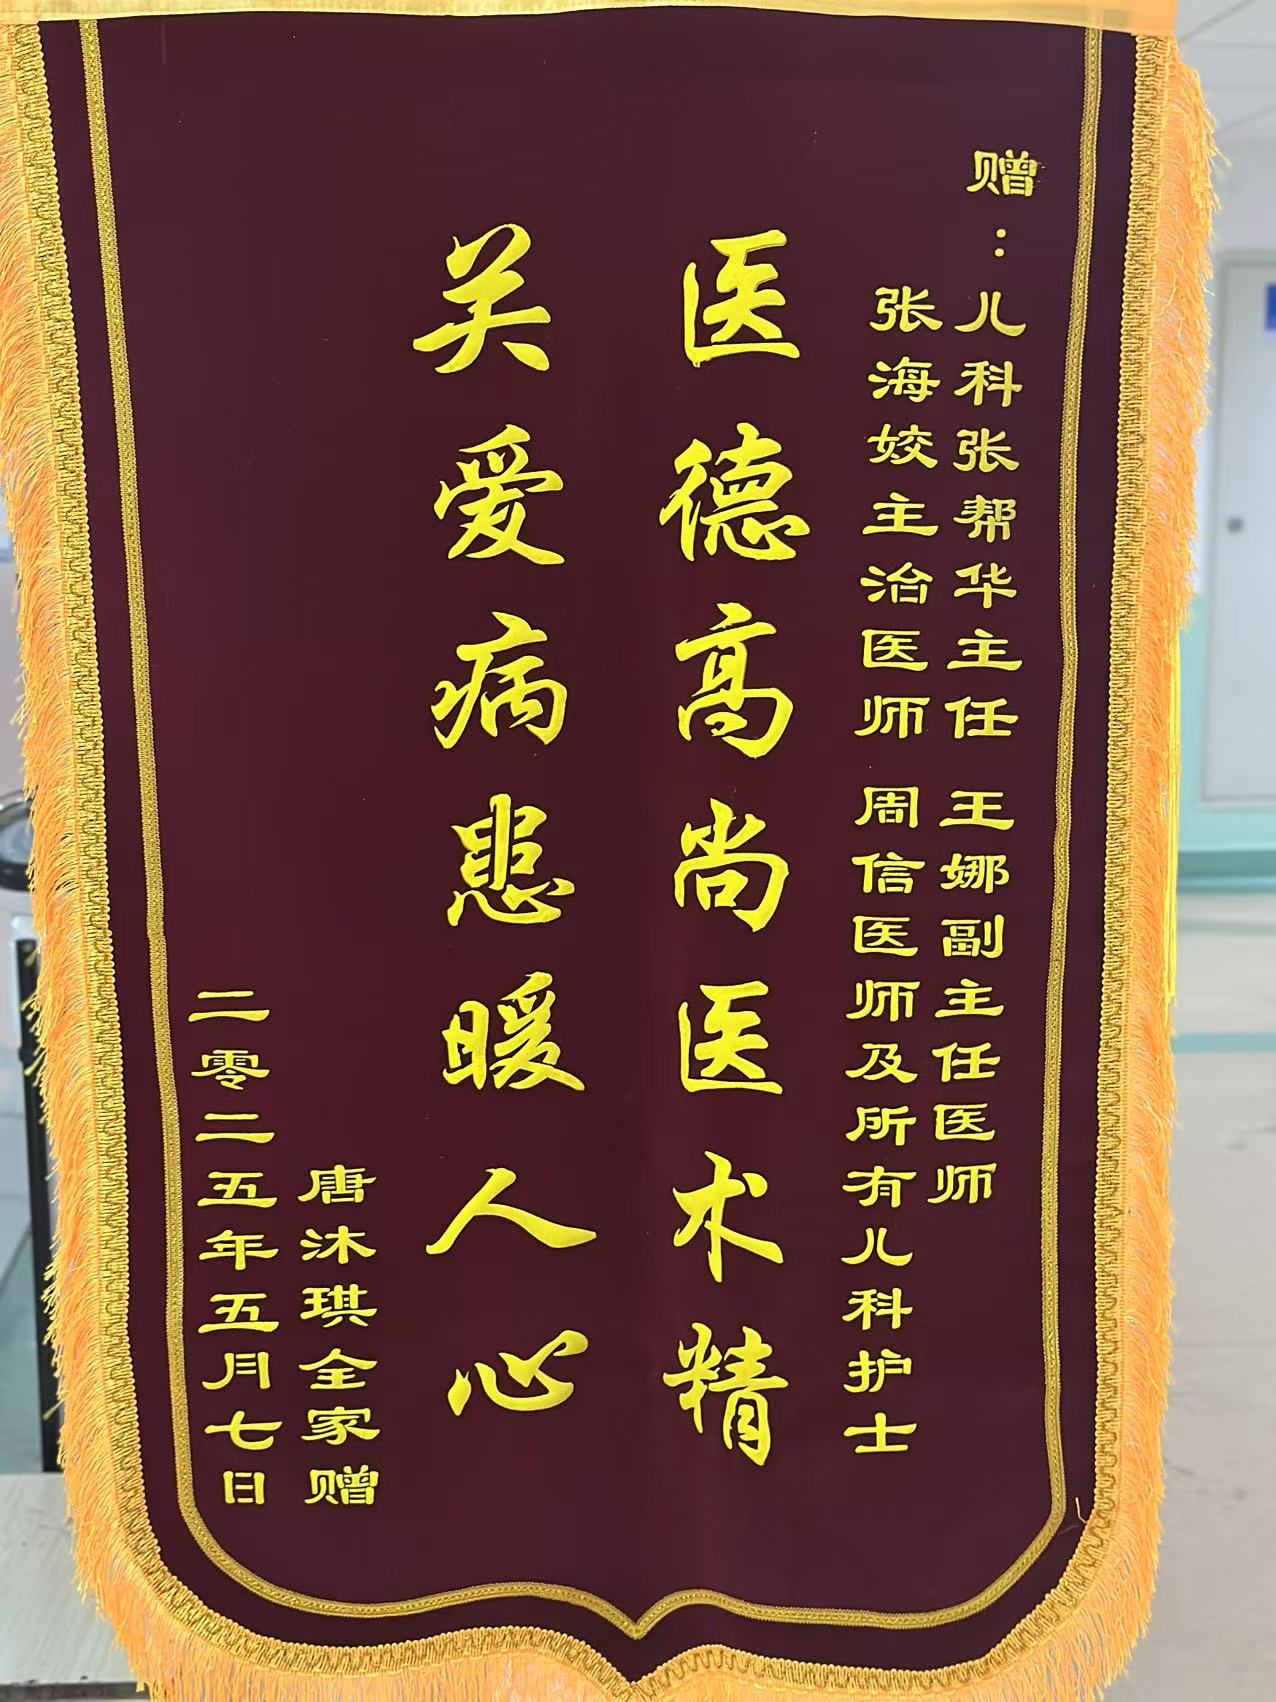 赠：儿科张帮华主任 王娜副主任医师
张海姣主治医师 周信医师及所有儿科护士
医德高尚医术精
关爱病患暖人心
唐沐琪全家赠
二零二五年五月七日